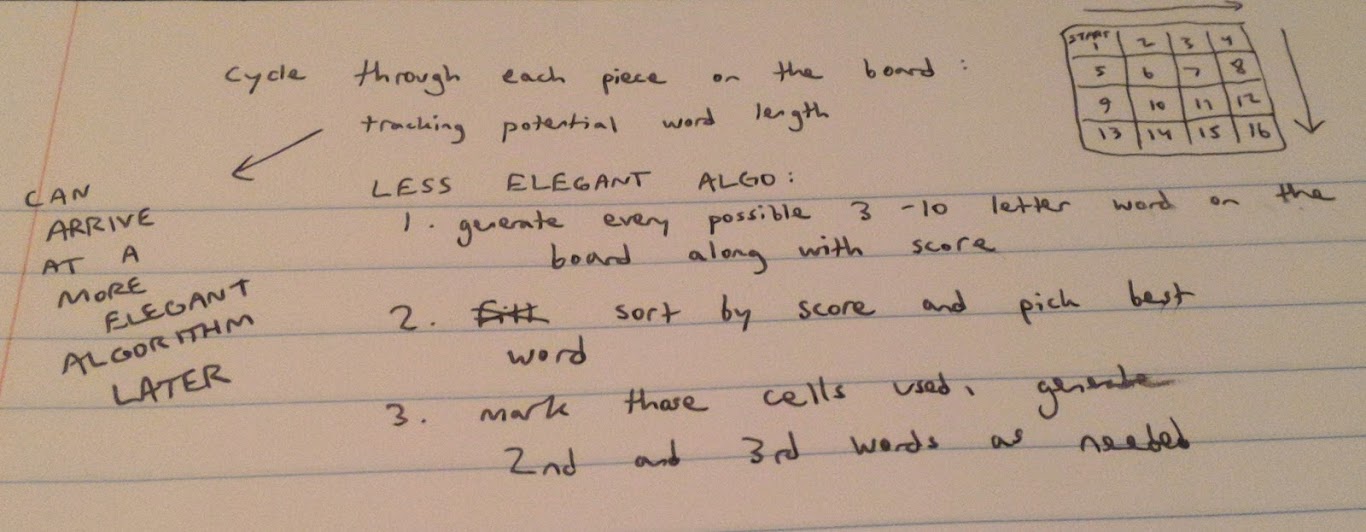 Cycle through each piece on the board :
tracking potential word length
START 1 2 3 4
5 6 7 8
9 10 11 12
13 14 15 16
CAN
ARRIVE
AT A
MORE
ELEGANT
ALGORITHM
LATER
LESS ELEGANT ALGO:
1. generate every possible 3-10 letter word on the
board along with score
2. sort by score and pick best
word
3. mark those cells used, generate
2nd and 3rd words as needed